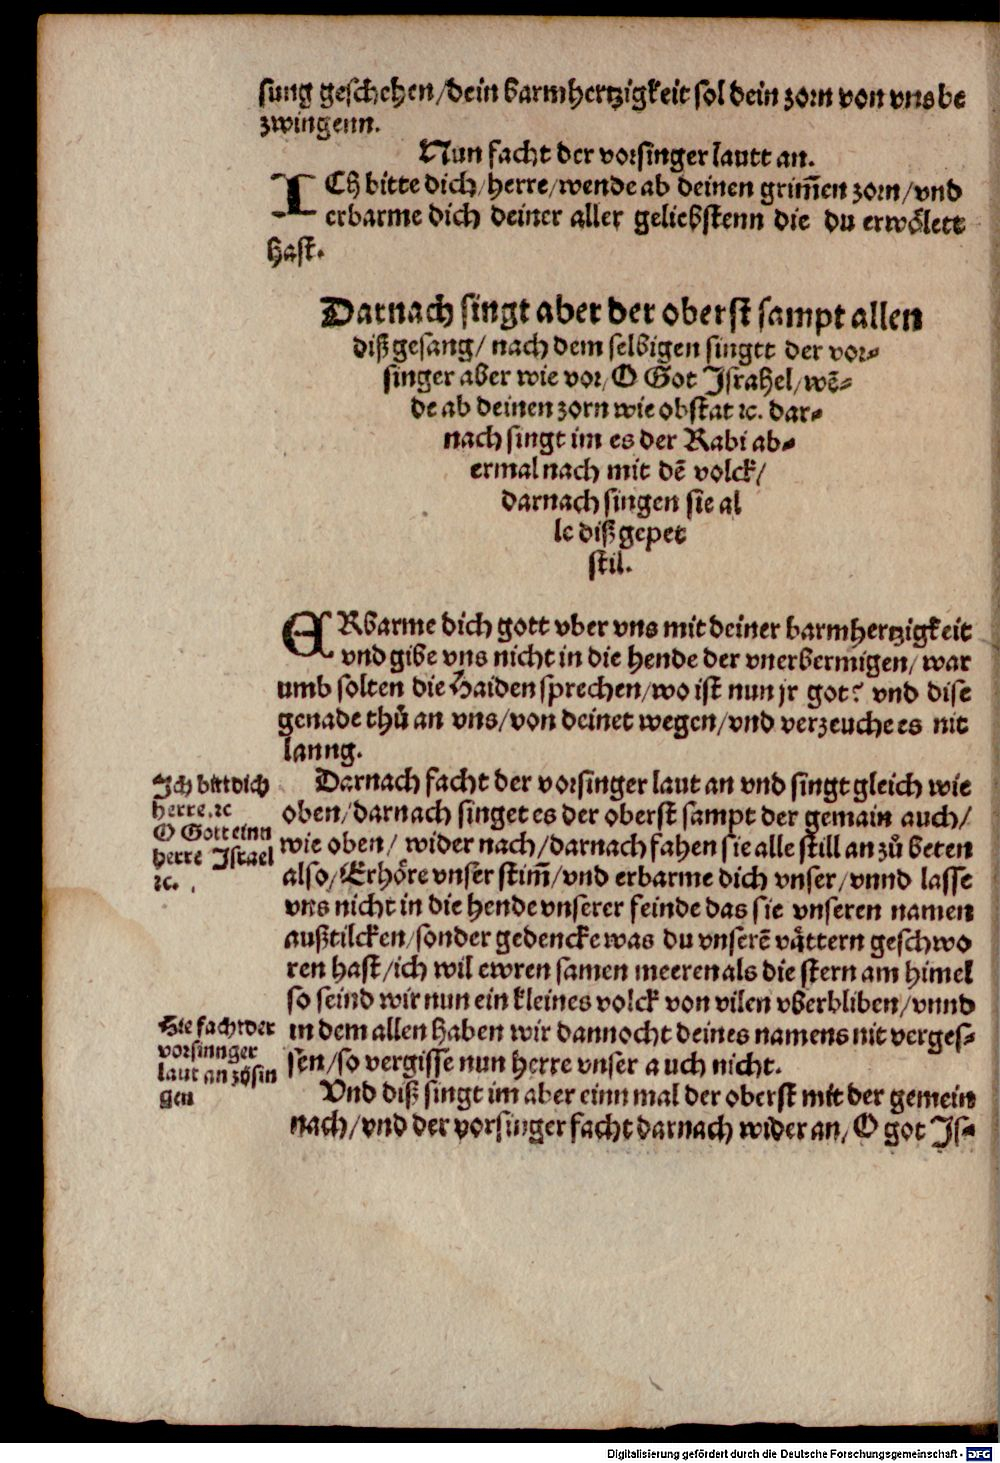 sung geschehen/dein barmhertzigkeit sol dein zorn von vns be
zwingenn.
Nun facht der vorsinger lautt an.
ICH bitte dich/herre/wende ab deinen grim̄en zorn/vnd
erbarme dich deiner aller geliebstenn die du erwoͤlett
hast.
Darnach singt aber der oberst sampt allen
diß gesang/ nach dem selbigen singtt der vor⸗
singer aber wie vor/O Got Jsrahel/wē⸗
de ab deinen zorn wie obstat ꝛc. dar⸗
nach singt im es der Rabi ab⸗
ermal nach mit dē volck/
darnach singen sie al
le diß gepet
stil.
ERbarme dich gott vber vns mit deiner barmhertzigkeit
vnd gibe vns nicht in die hende der vnerbermigen/war
umb solten die Haiden sprechen/wo ist nun jr got? vnd dise
genade thuͦ an vns/von deinet wegen/vnd verzeuche es nit
lanng.
Darnach facht der vorsinger laut an vnd singt gleich wie
oben/darnach singet es der oberst sampt der gemain auch/
wie oben/ wider nach/darnach fahen sie alle still an zuͦ beten
also/Erhoͤre vnser stim̄/vnd erbarme dich vnser/vnnd lasse
vns nicht in die hende vnserer feinde das sie vnseren namen
außtilcken/sonder gedencke was du vnserē vaͤttern geschwo
ren hast/ich wil ewren samen meeren als die stern am himel
so seind wir nun ein kleines volck von vilen vberbliben/vnnd
in dem allen haben wir dannocht deines namens nit verges⸗
sen/so vergisse nun herre vnser auch nicht.
Vnd diß singt im aber einn mal der oberst mit der gemein
nach/vnd der vorsinger facht darnach wider an/O got Js⸗
Jch bitt dich
herre.ꝛc
O Gott einn
herre Israel
ꝛc.
Hie facht der
vorsinnger
laut an zuͦ sin
gen
Digitalisierung gefördert durch die Deutsche Forschungsgemeinschaft - DFG